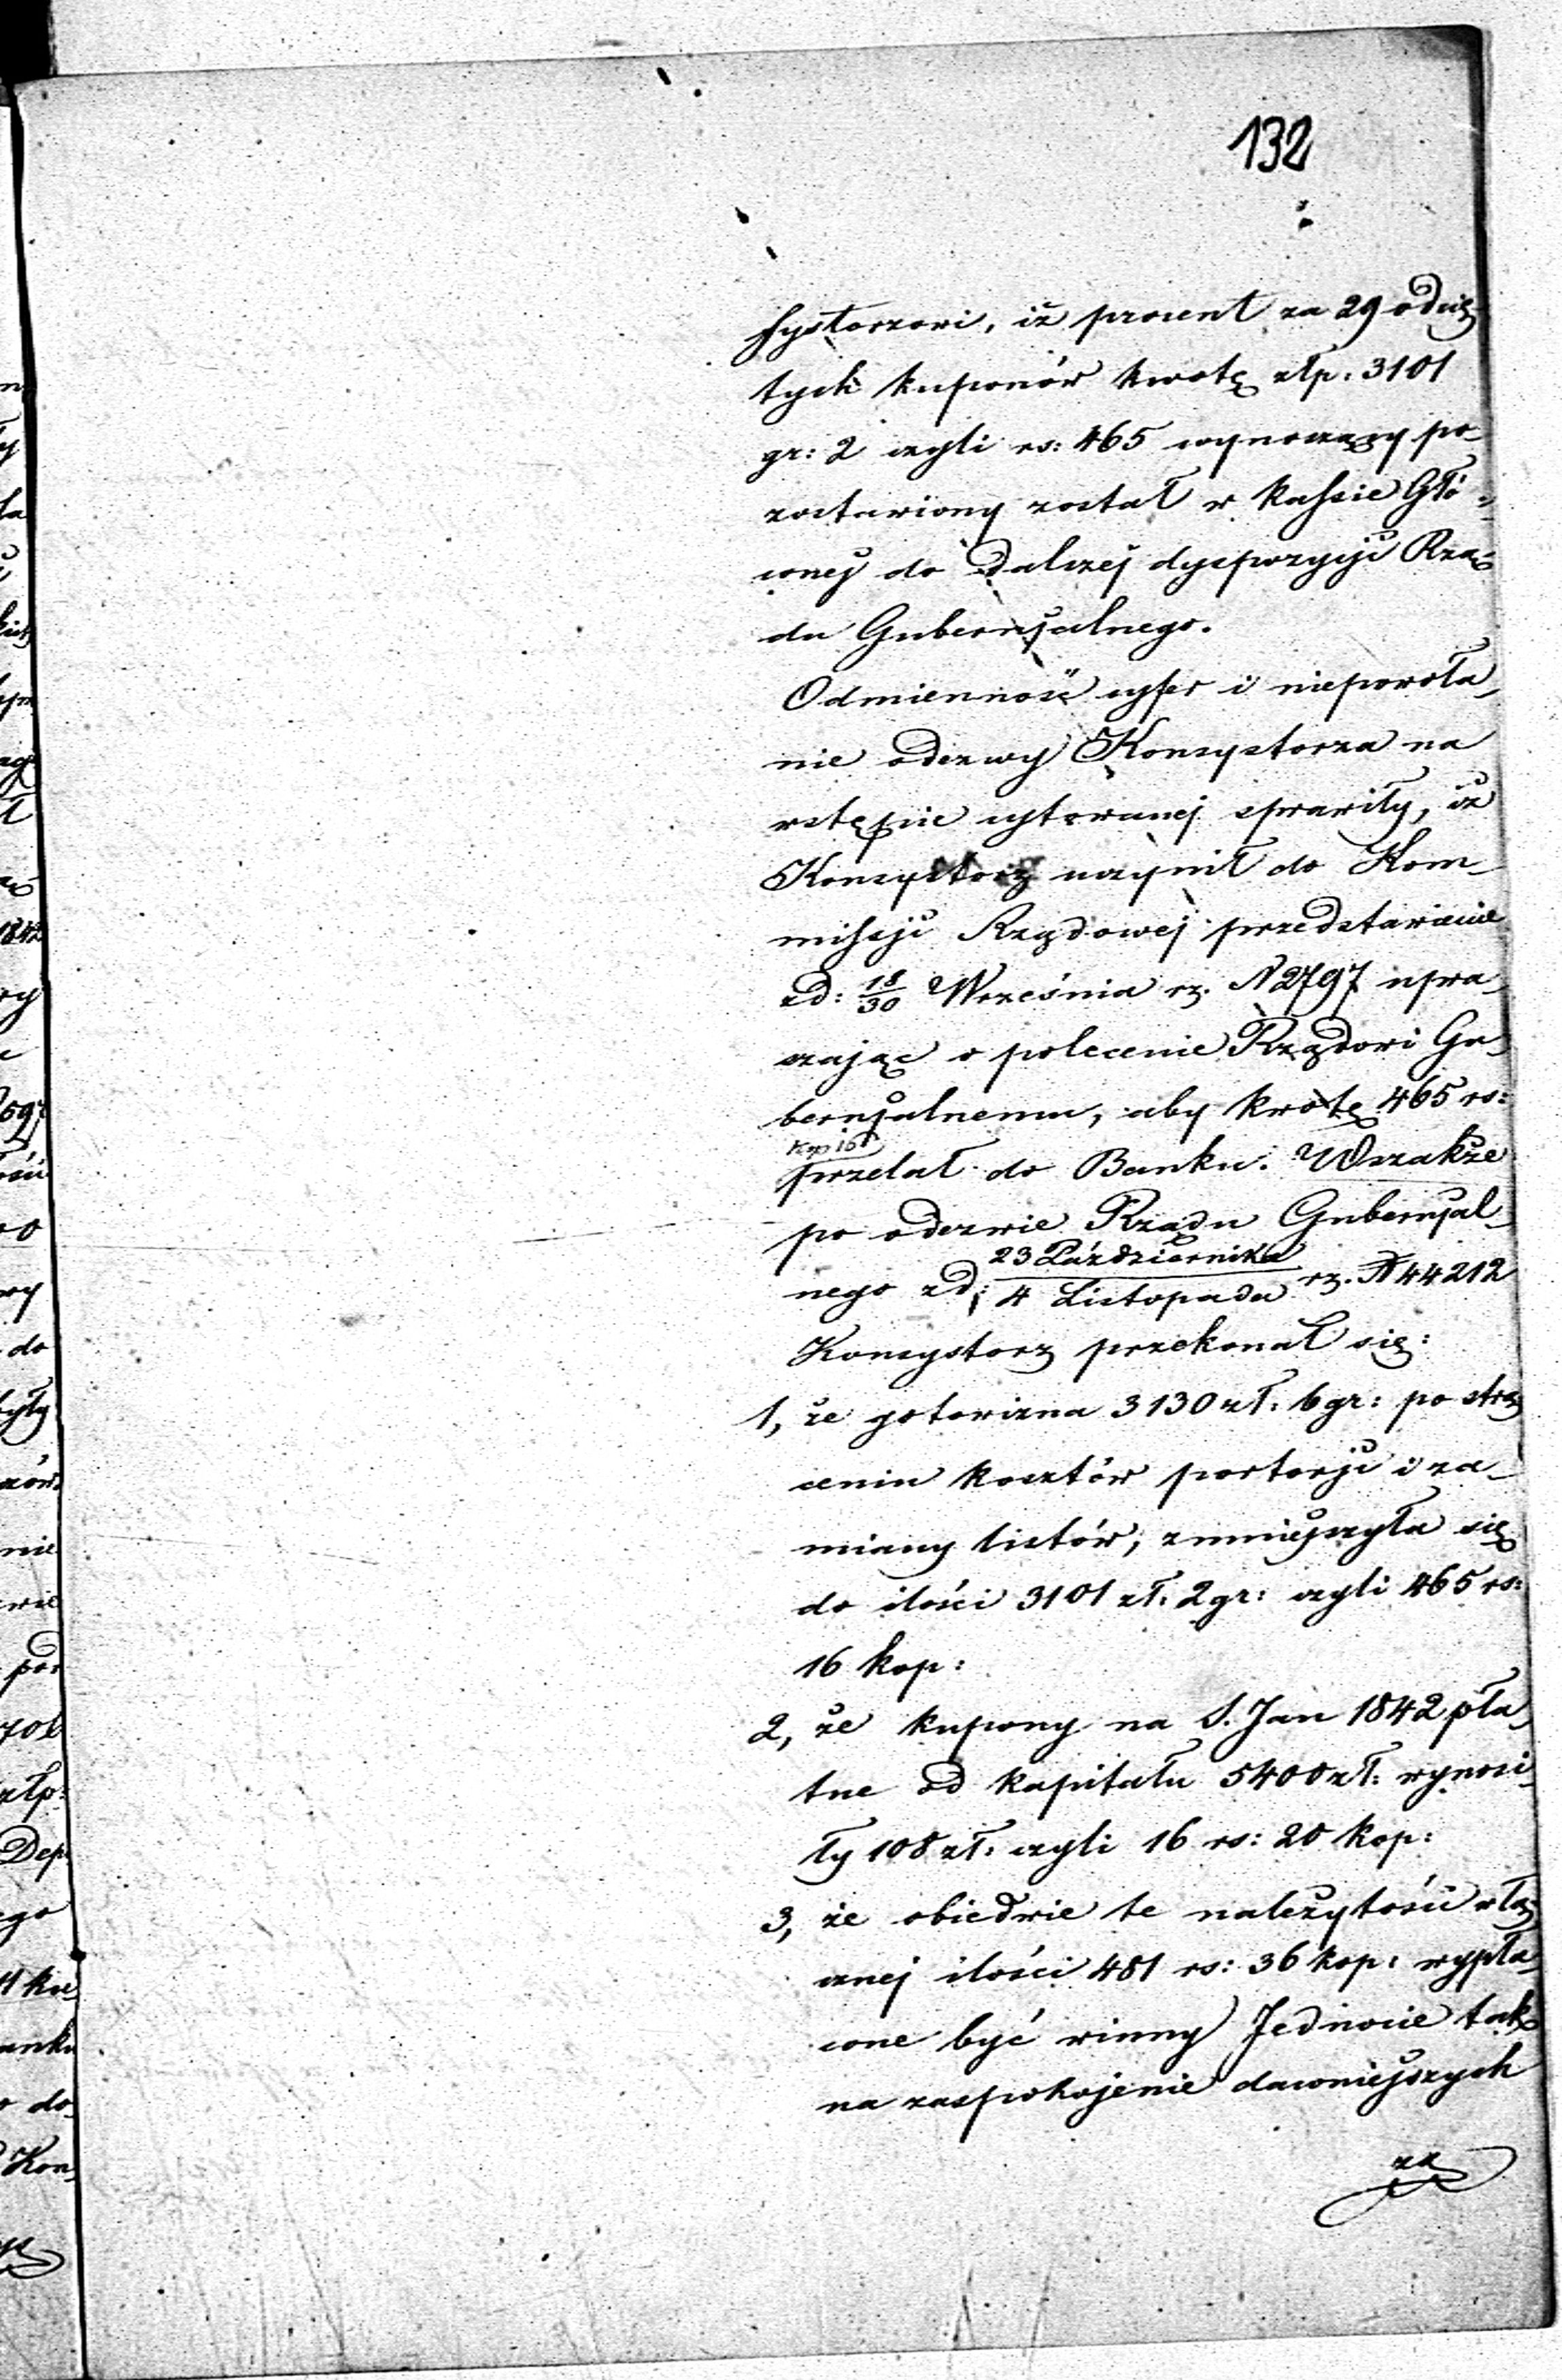 132
systorzowi, iż procent za 29 odcię-
tych kuponów kwotę złp: 3101
gr: 2 czyli rs: 465 wynoszący po-
zostawiony został w kassie Głó-
wnej do dalszej dyspozycji Rzą-
du Gubernjalnego.
Odmienność cyfer i niepowoła-
nie odezwy Konsystorza na
wstępie cytowanej sprawiły, iż
Konsystorz uczynił do Kom-
missji Rządowej przedstawienie
zd: 18/30 Września rz. N 2797 upra-
szając o polecenie Rządowi Gu-
bernjalnemu, aby kwotę 465 rs:
kop 16
przelał do Banku. Wszakże
po odezwie Rządu Gubernjal-
nego zd: 23 Października / 4 Listopada rz. N 44212
Konsystorz przekonał się:
1, że gotowizna 3130 zł. 6 gr: po strą-
ceniu kosztów portorji i za-
miany listów, zmniejszyła się
do ilości 3101 zł. 2 gr: czyli 465 rs:
16 kop:
2, że kupony na S. Jan 1842 pła-
tne od kapitału 5400 zł: wynosi-
ły 108 zł: czyli 16 rs: 20 kop:
3, że obiedwie te należytości w łą-
cznej ilości 481 rs: 36 kop: wypła-
cone być winny Jednocie tak
na zaspokojenie dawniejszych